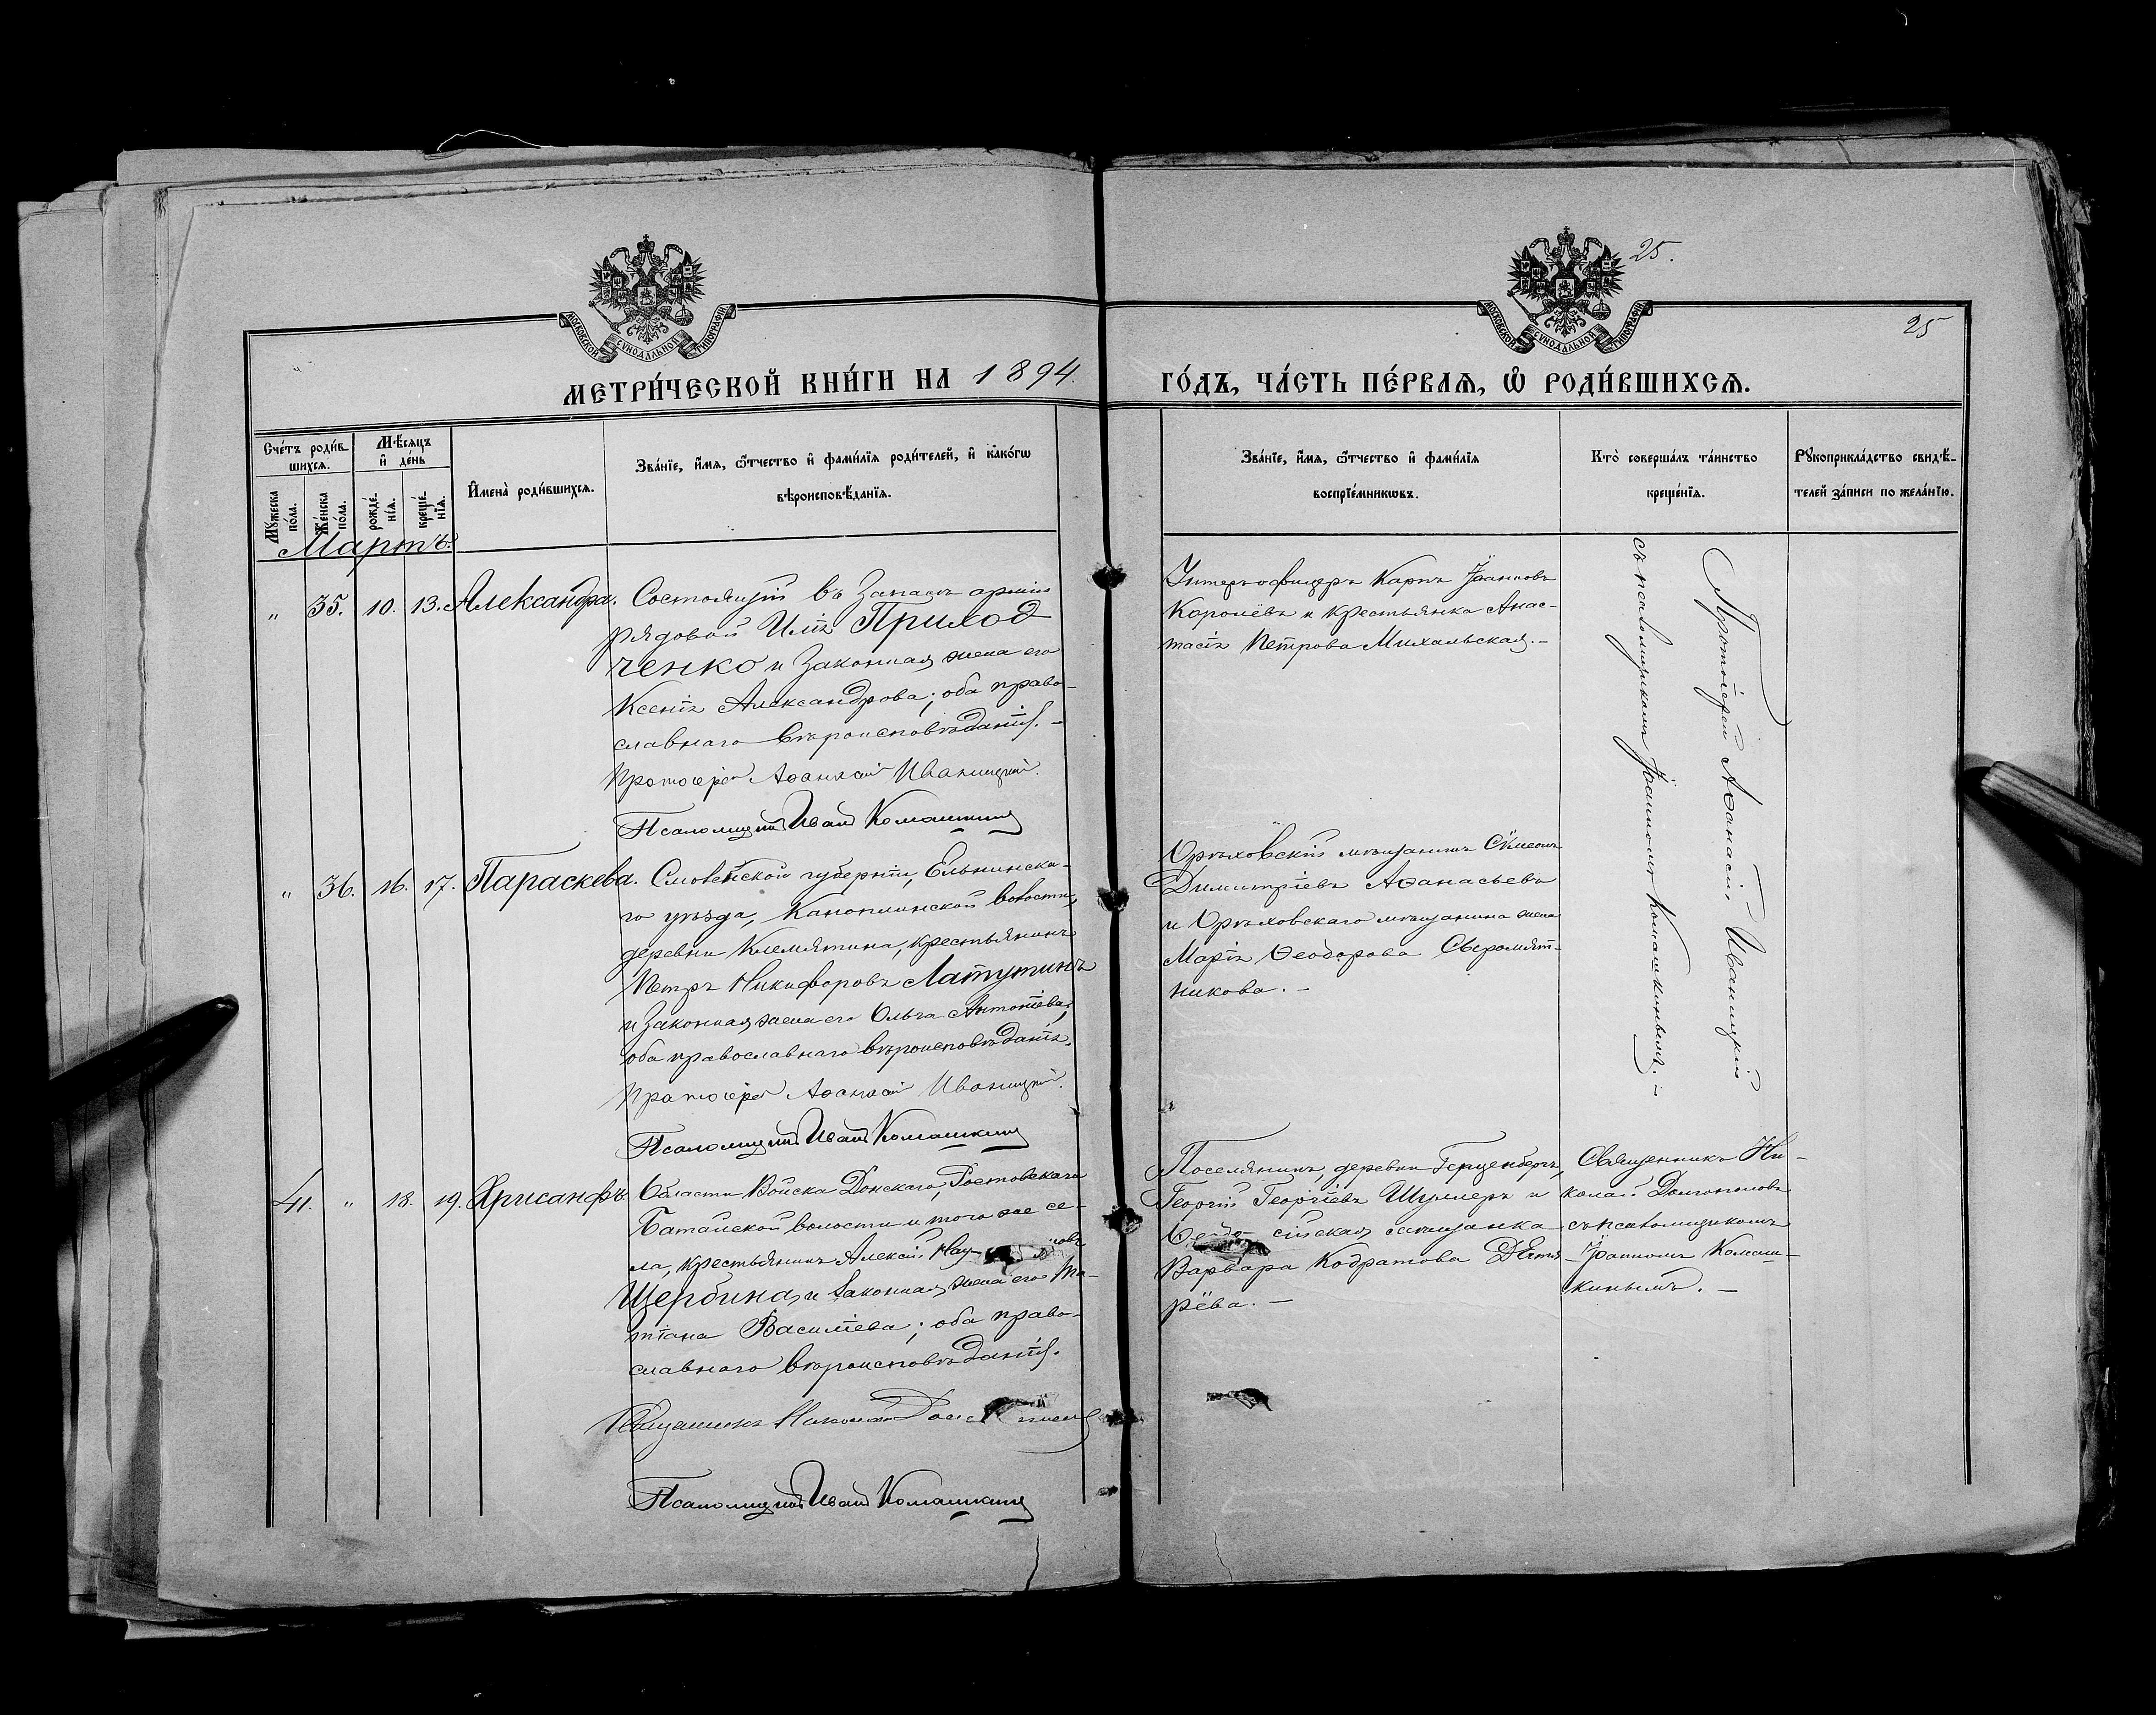 25.
25
МОСКОВСКОЙ СУНОДАЛЬНОЙ ТИПОГРАФІИ
МОСКОВСКОЙ СУНОДАЛЬНОЙ ТИПОГРАФІИ
МЕТРИ́ЧЕСКОЙ КНИ́ГИ НА 1894.
ГО́ДЪ, ЧА́СТЬ ПЕ́РВАѦ, Ѡ҆ РОДИ́ВШИХСѦ.
Сче́тъ роди́в
шихсѧ.
Мѣ́сѧцъ
и҆ де́нь
Мꙋ́жеска
по́ла.
Же́нска
по́ла.
рожде́
нїѧ.
креще́
нїѧ.
И҆мена̀ роди́вшихсѧ.
Зва́нїе, и҆́мѧ, ѻ҆́тчество и҆ фами́лїѧ роди́телей, и҆ како́гѡ
вѣроисповѣ́данїѧ.
Зва́нїе, и҆́мѧ, ѻ҆́тчество и҆ фами́лїѧ
воспрїе́мникѡвъ.
Кто̀ соверша́лъ та́инство
креще́нїѧ.
Рꙋкоприкла́дство свидѣ́-
телей за́писи по жела́нїю.
Мартъ.
„ 35. 10. 13. Александра.
Состоящій въ Запасѣ арміи
рядовой Илія Приход
ченко и Законная жена его
Ксенія Александрова; оба право-
славнаго вѣроисповѣданія. -
Протоіерей Аѳанасій Иваницкій.
Псаломщикъ Иванъ Комашкинъ
Унтеръ-офицеръ Карпъ Іоанновъ
Королёвъ и крестьянка Анас-
тасія Петрова Михальская. -
Протоіерей Аѳанасій Иваницкій
съ псаломщикомъ Іоанномъ Комашкинымъ. -
„ 36. 16. 17. Параскева.
Смоленской губерніи, Ельнинска-
го уѣзда, волости,
деревни Клемятина, крестьянинъ
Петръ Никифоровъ Латутинъ
и Законная жена его Ольга Антоніева;
оба православнаго вѣроисповѣданія.
Протоіерей Аѳанасій Иваницкій.
Псаломщикъ Иванъ Комашкинъ
Орѣховскій мѣщанинъ Сѵмеонъ
Димитріевъ Аѳанасьевъ
и Орѣховскаго мѣщанина жена
Марія Ѳеодорова Сыромят-
никова. -
41. „ 18. 19. Хрисанфъ.
Области Войска Донскаго, Ростовскаго
Батайской волости и того же се-
ла, крестьянинъ Алексій
Щербина, и Законная жена его Та-
тіана Василіева; оба право-
славнаго вѣроисповѣданія.
Священникъ Николай
Псаломщикъ Иванъ Комашкинъ
Поселянинъ, деревни Герценбергъ,
Георгій Георгіевъ Шуллеръ и
мѣщанка
Варвара Кодратова Дегтя-
рёва. -
Священникъ Ни-
колай Долгополовъ
съ псаломщикомъ
Іоанномъ Комаш-
кинымъ. -